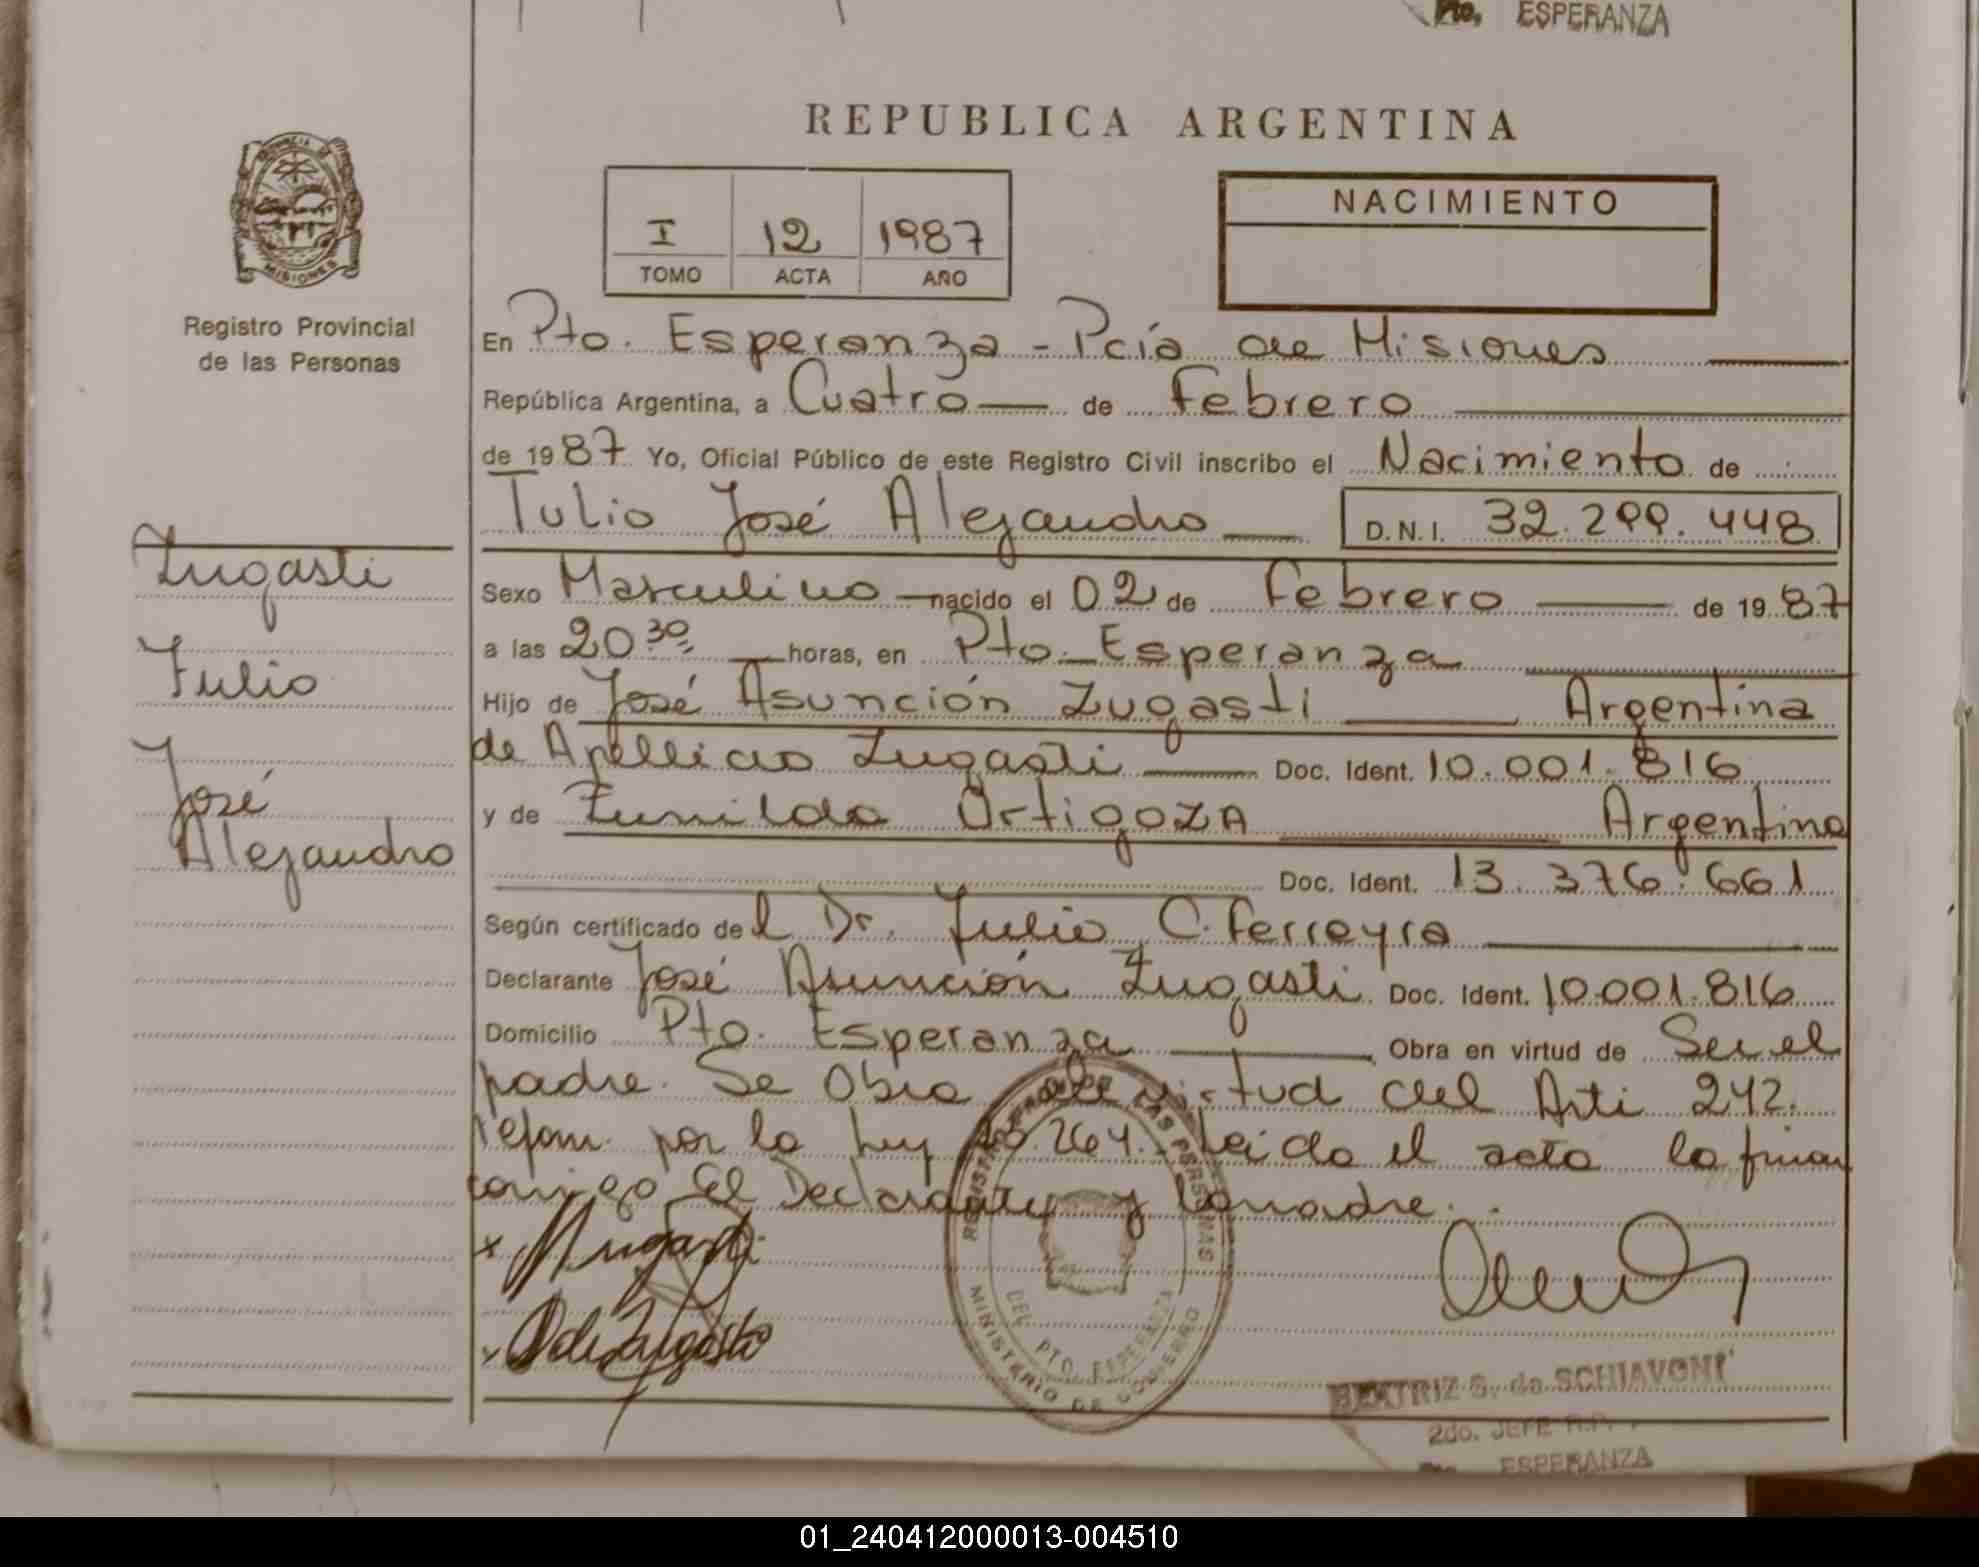 Pto. ESPERANZA
REPUBLICA ARGENTINA
NACIMIENTO
I 12 1987
TOMO ACTA AÑO
MISIONES
Registro Provincial
de las Personas
En Pto. Esperanza - Pcía de Misiones
República Argentina, a Cuatro de Febrero
de 1987 Yo, Oficial Público de este Registro Civil inscribo el Nacimiento de
Tulio José Alejandro D.N.I. 32.299.448
Zugasti
Sexo Masculino nacido el 02 de Febrero de 1987
a las 20 30 horas, en Pto. Esperanza
Tulio
Hijo de José Asunción Zugasti Argentina
de Apellido Zugasti Doc. Ident. 10.001.816
José
y de Zunilda Ortigoza Argentina
Alejandro
Doc. Ident. 13.376.661
Según certificado del Dr. Julio C. Ferreyra
Declarante José Asunción Zugasti Doc. Ident. 10.001.816
Domicilio Pto. Esperanza Obra en virtud de Ser el
padre. Se Obra de virtud del Arti 242.
reform. por la Ley 264. Leída el acta la firman
conmigo El Declarante y la madre.
REGISTRO DE LAS PERSONAS
DEL PTO. ESPERANZA
MINISTERIO DE GOBIERNO
BEATRIZ S. de SCHIAVONI
2do. JEFE R.P.
Pto. ESPERANZA
01_240412000013-004510